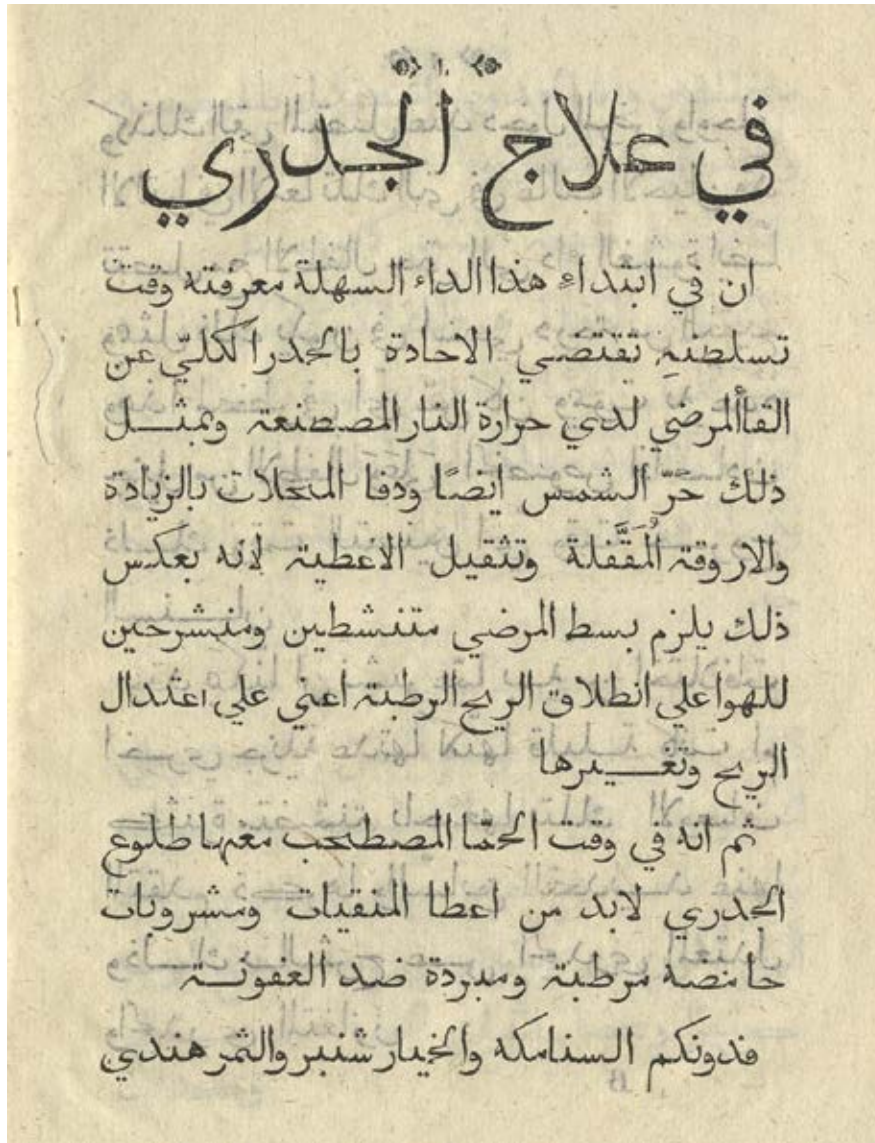 في علاج الجدري
ان في ابتداءِ هذا الداء السهلة معرفته وقت
تسلطنهِ تقتضي الاحادة بالحدر الكلّي عن
القأ المرضي لدي حرارة النار المصطنعة وبمثل
ذلك حَرّ الشمس ايضًا ودفا المحلات بالزيادة
والاروقة المُقَّفلة وتثقيل الاغطية لانه بعكس
ذلك يلزم بسط المرضي متنشطين ومنشرحين
للهوا علي انطلاق الريح الرطبة اعني علي اعتدال
الريح وتغييرها
ثم انه في وقت الحمّا المصطحب معها طلوع
الجدري لابد من اعطا المنقيات ومشروبات
حامضه مرطبة ومبردة ضد العفونة
فدونكم السنامكه والخيار شنبر والثمر هندي